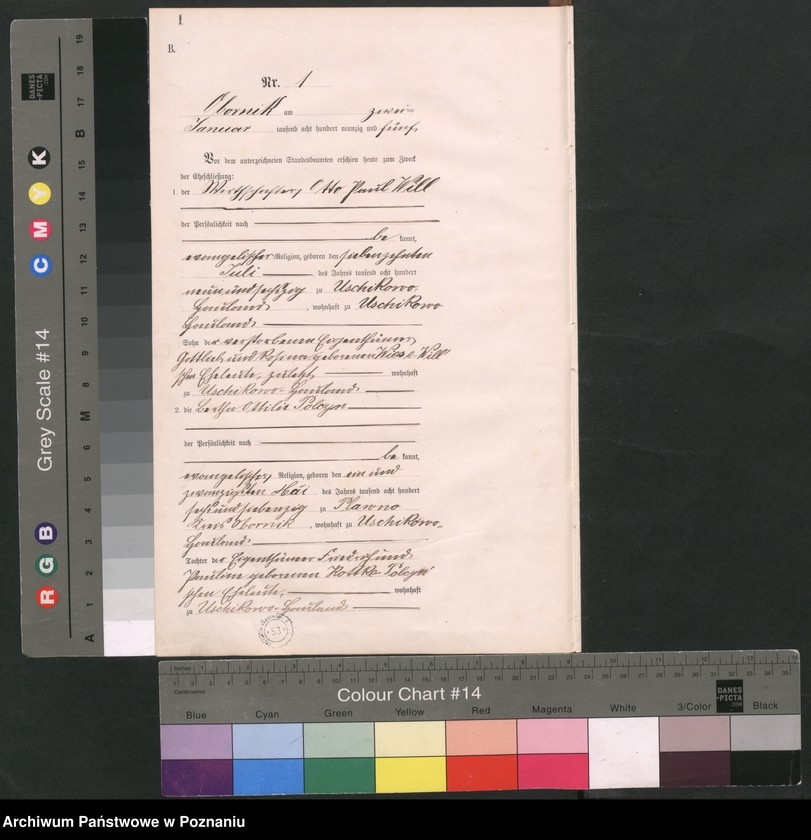 1
B.
Nr. 1
Obornik am zwei-
Januar tausend acht hundert neunzig und fünf.
Vor dem unterzeichneten Standesbeamten erschien heute zum Zweck
der Eheschließung:
1. der Otto Paul Will
der Persönlichkeit nach
be kannt,
evangelischer Religion, geboren den siebenzehnten
Juli des Jahres tausend acht hundert
neunundsechszig zu Uschikowo-
Hauland, wohnhaft zu Uschikowo
Hauland
Sohn der verstorbenen Eigenthümer
Gottlieb und Rosina geborenen Will'
schen Eheleute, zuletzt wohnhaft
zu Uschikowo-Hauland
2. die Bertha Ottilie Polzyn
der Persönlichkeit nach
be kannt,
evangelischer Religion, geboren den ein und
zwanzigsten Mai des Jahres tausend acht hundert
sechsundsiebenzig zu Plawno
Kreis Obornik, wohnhaft zu Uschikowo-
Hauland
Tochter der Eigenthümer Friedrich und
Pauline geborenen Polzyn'
schen Eheleute, wohnhaft
zu Uschikowo-Hauland
53
Grey Scale #14
C M Y K
R G B
A 1 2 3 4 5 6 M 8 9 10 11 12 13 14 15 B 17 18 19
DANES
-PICTA
.COM
Inches
Centimetres
Colour Chart #14
DANES
-PICTA
.COM
Blue Cyan Green Yellow Red Magenta White 3/Color Black
Archiwum Państwowe w Poznaniu